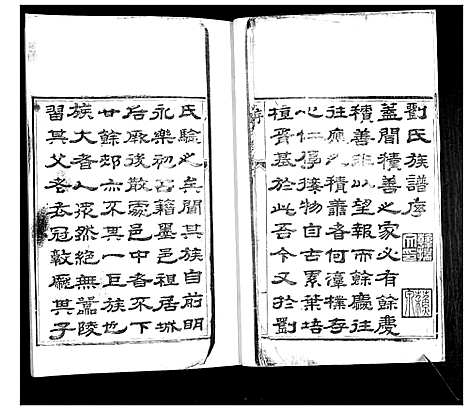 劉氏族譜序
蓋聞積善之家必有餘慶
積善非以望報而餘慶往
往應之積蕭者何渾樸存
心仁厚接物自古累葉培
植胥基於此吾今又於劉
氏驗之矣聞其族自前明
永樂初占籍墨邑祖居城
后厥後散處邑中者不下
廿餘邨亦不其一巨族也
族大者人眾然絕無囂陵
習其父老衣冠敦龐其子